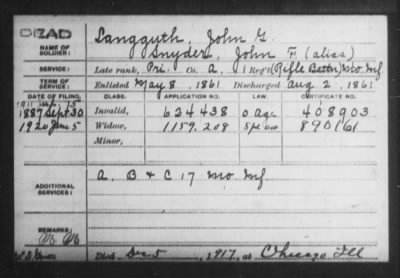 DEAD
NAME OF SOLDIER: Langguth, John G.
Snyder, John F. (alias)
SERVICE: Late rank, Pri. Co. A, 1 Reg't (Rifle Battn) Mo. Inf
TERM OF SERVICE: Enlisted May 8, 1861 Discharged Aug 2, 1861
DATE OF FILING. CLASS. APPLICATION NO. LAW. CERTIFICATE NO.
1887 Sept 30 Invalid, 624438 408903
1920 Jan 5 Widow, 1159.208 890161
Minor,
ADDITIONAL SERVICES: A. B & C 17 Mo Inf
REMARKS:
Died Dec 5, 1917, at Chicago Ill